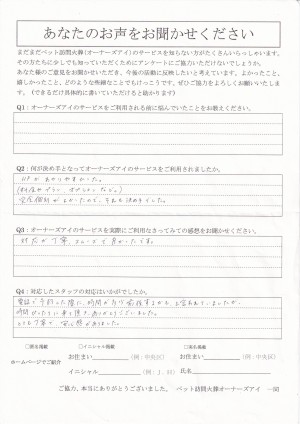 あなたのお声をお聞かせください
まだまだペット訪問火葬(オーナーズアイ)のサービスを知らない方がたくさんいらっしゃいます。
その方たちに少しでも知っていただくためにアンケートにご協力いただけないでしょうか。
あなた様のご意見をお聞かせいただき、今後の活動に反映したいと考えています。よかったこと、
嬉しかったこと、どのような些細なことでもけっこうです。ぜひご協力をよろしくお願いいたします。
(できるだけ具体的に書いていただけると助かります)
Q1：オーナーズアイのサービスをご利用される前に悩んでいたことをお教えください。
Q2：何が決め手となってオーナーズアイのサービスをご利用されましたか。
HPがわかりやすかった。
(料金やプラン、オプションなど。)
完全個別がよかったので、それも決め手でした。
Q3：オーナーズアイのサービスを実際にご利用なさってみての感想をお聞かせください。
対応が丁寧、スムーズで良かったです。
Q4：対応したスタッフの対応はいかがでしたか。
電話で予約した際に、時間が
ありがとうございました。
とても丁寧で、安心感がありました。
ホームページでご紹介
□匿名掲載
□イニシャル掲載
□実名掲載
お住まい (例：中央区)
お住まい (例：中央区)
イニシャル (例：J．H)
氏名
ご協力、本当にありがとうございました。 ペット訪問火葬オーナーズアイ 一同